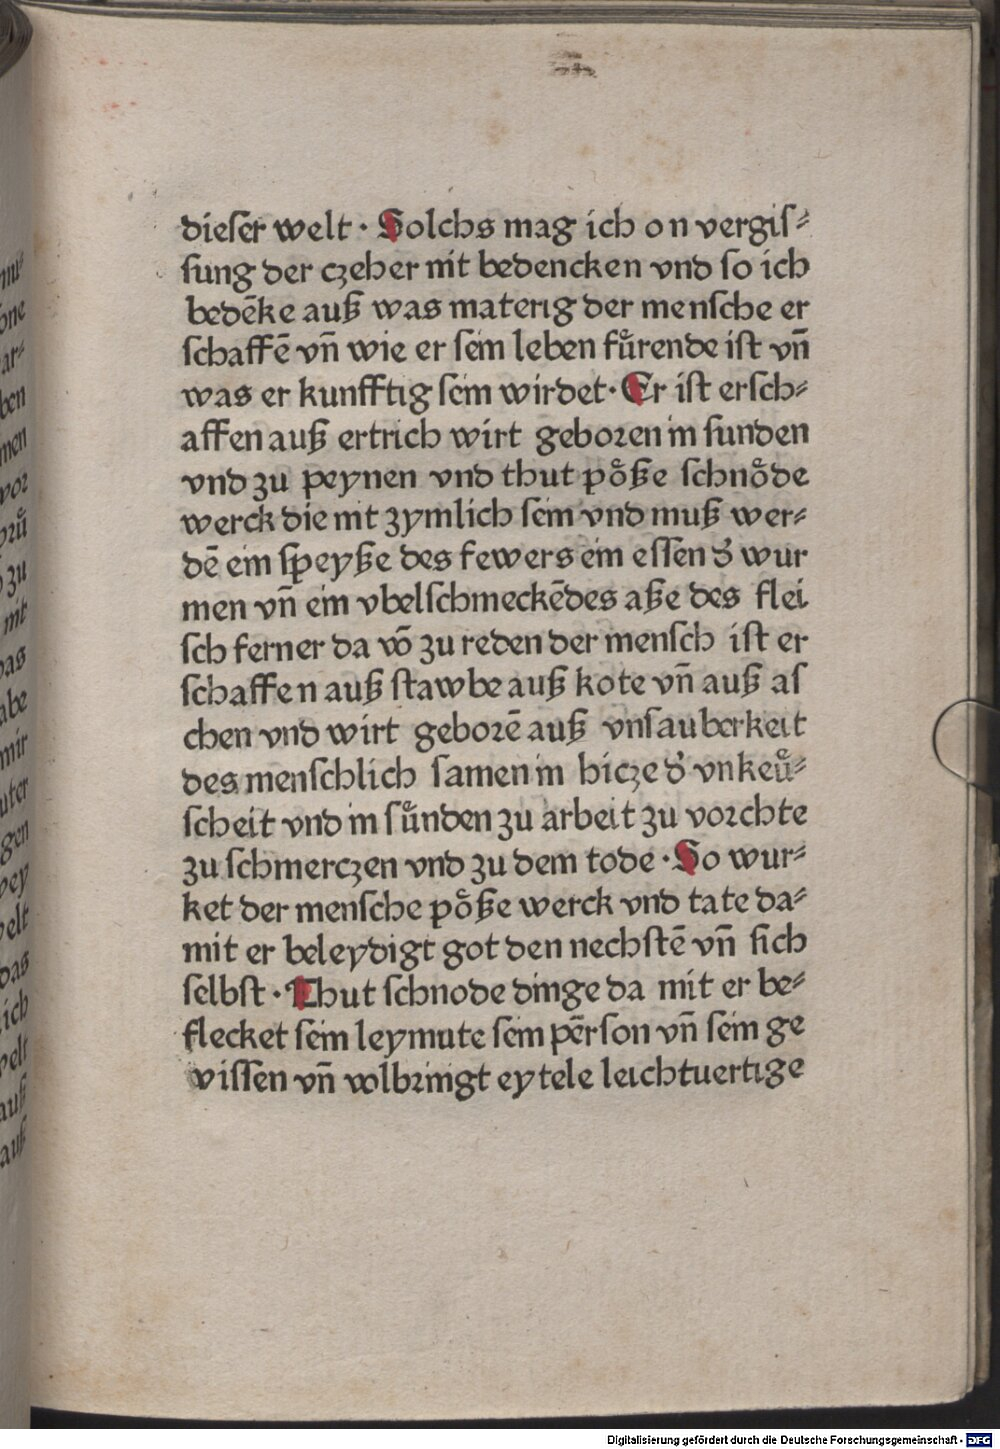 dieſer welt · Solchs mag ich on vergiſ⸗
ſung der czeher nit bedencken vnd ſo ich
bedēke auß was materig der menſche er
ſchaffē vn̄ wie er ſein leben fuͤrende iſt vn̄
was er kunfftig ſein wirdet · Er iſt erſch⸗
affen auß ertrich wirt geboꝛen in ſunden
vnd zu peynen vnd thut poͤße ſchnoͤde
werck die nit zymlich ſein vnd muß wer⸗
dē ein ſpeyße des fewers ein eſſen dˀ wur
men vn̄ ein vbelſchmeckēdes aße des flei
ſch ferner da vō zu reden der menſch iſt er
ſchaffen auß ſtawbe auß kote vn̄ auß aſ
chen vnd wirt geboꝛē auß vnſauberkeit
des menſchlich ſamen in hicze dˀ vnkeuͤ⸗
ſcheit vnd in ſuͤnden zu arbeit zu voꝛchte
zu ſchmerczen vnd zu dem tode · So wur⸗
ket der menſche poͤße werck vnd tate da⸗
mit er beleydigt got den nechſtē vn̄ ſich
ſelbſt · Thut ſchnode dinge da mit er be⸗
flecket ſein leymute ſein pērſon vn̄ ſein ge
viſſen vn̄ volbꝛingt eytele leichtuertige
Digitalisierung gefördert durch die Deutsche Forschungsgemeinschaft - DFG